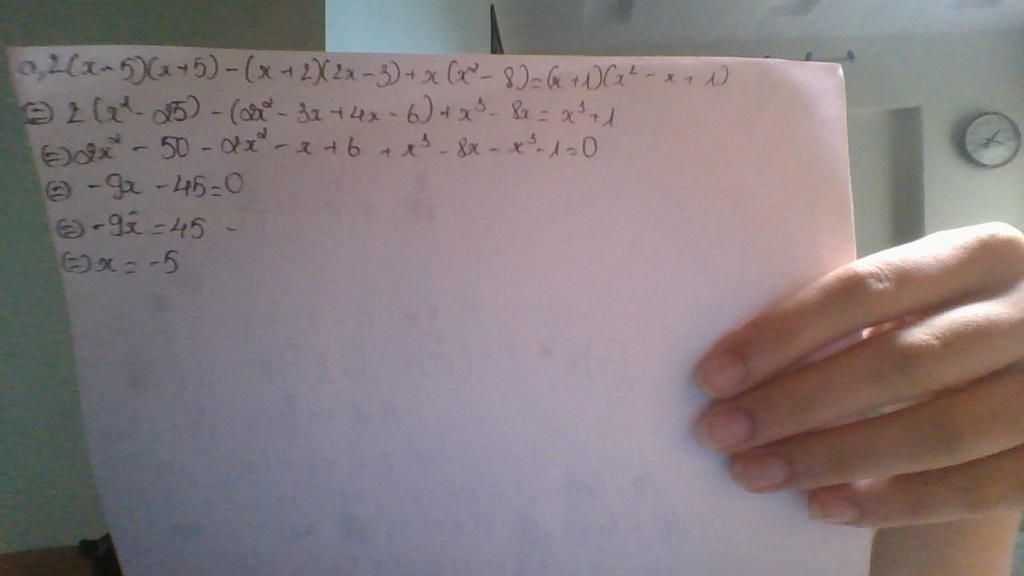 a, 2(x-5)(x+5) - (x+2)(2x-3) + x(x² - 8) = (x+1)(x² - x + 1)
(=) 2(x² - 25) - (2x² - 3x + 4x - 6) + x³ - 8x = x³ + 1
(=) 2x² - 50 - 2x² - x + 6 + x³ - 8x - x³ - 1 = 0
(=) -9x - 45 = 0
(=) -9x = 45
(=) x = -5